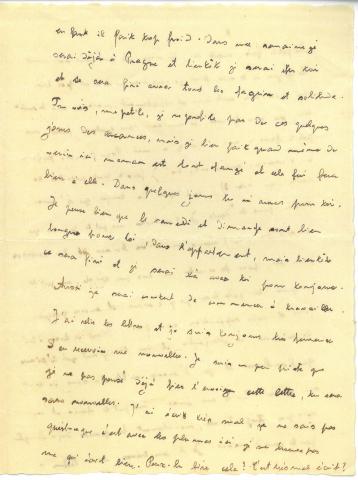 il fait trop froid. Dans une semaine je
serai déjà à Prague et bientôt je serai
et ce sera fini avec tous les et solitude.
Tu vois, ma petite, je ne profite pas de ces quelques
jours des vacances, mais j'ai bien fait quand même de
venir ici, maman est et cela fait
bien à elle. Dans quelques jours tu m'auras pour toi.
Je pense bien que le samedi et dimanche sont bien
longues pour toi dans l'appartement, mais bientôt
ce sera fini et je serai là avec toi pour toujours.
Aussi je serai content de commencer à travailler.
J'ai relis tes lettres et je suis toujours très heureux
d'en recevoir une nouvelle. Je suis un peu triste que
je n'ai pas pensé déjà hier t'envoyer cette lettre, tu seras
sans nouvelles. J'ai écrit très mal, je ne sais pas
qu'est-ce que c'est avec des plumes ici, je ne trouve pas
une qui écrit bien. Peux-tu lire cela? C'est très mal écrit?